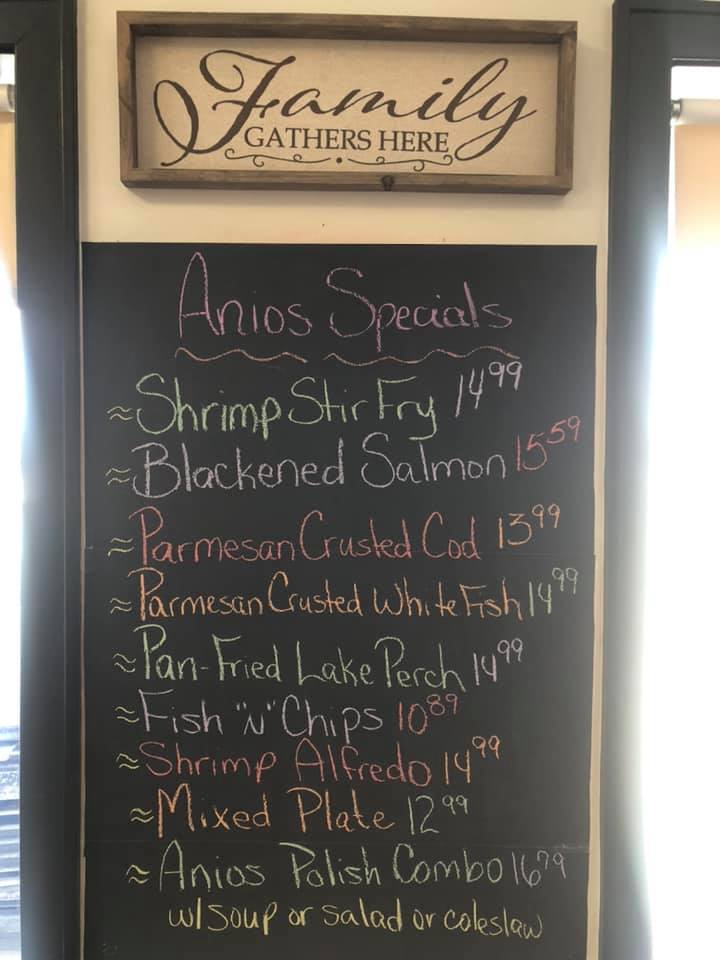 Family
GATHERS HERE
Anios Specials
≈Shrimp Stir Fry 14⁹⁹
≈Blackened Salmon 15⁵⁹
≈Parmesan Crusted Cod 13⁹⁹
≈Parmesan Crusted White Fish 14⁹⁹
≈Pan-Fried Lake Perch 14⁹⁹
≈Fish "N" Chips 10⁸⁹
≈Shrimp Alfredo 14⁹⁹
≈Mixed Plate 12⁹⁹
≈Anios Polish Combo 16⁷⁹
w/ soup or salad or coleslaw